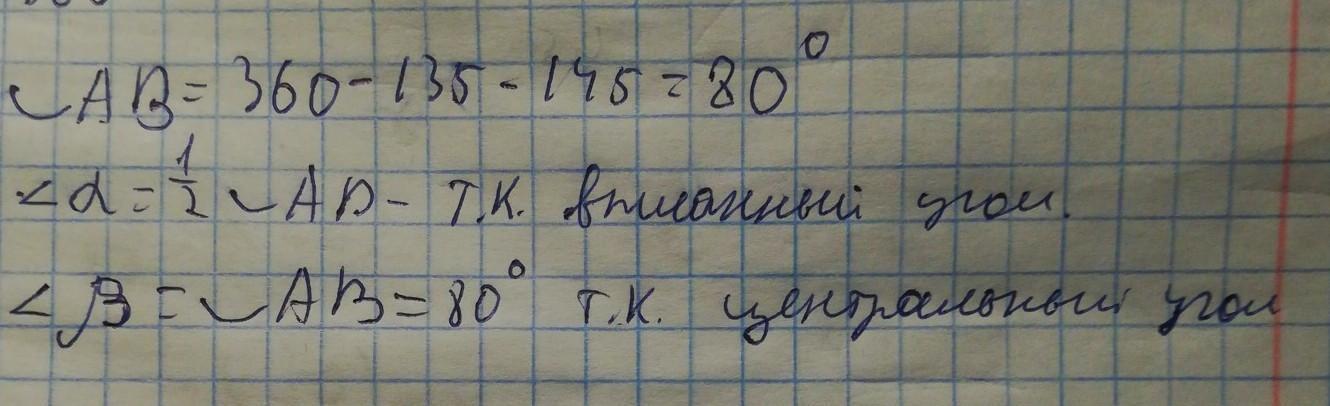 ◡AB = 360 - 135 - 145 = 80°
<α = 1/2 ◡AB - т.к. вписанный угол.
<β = ◡AB = 80° т.к. центральный угол